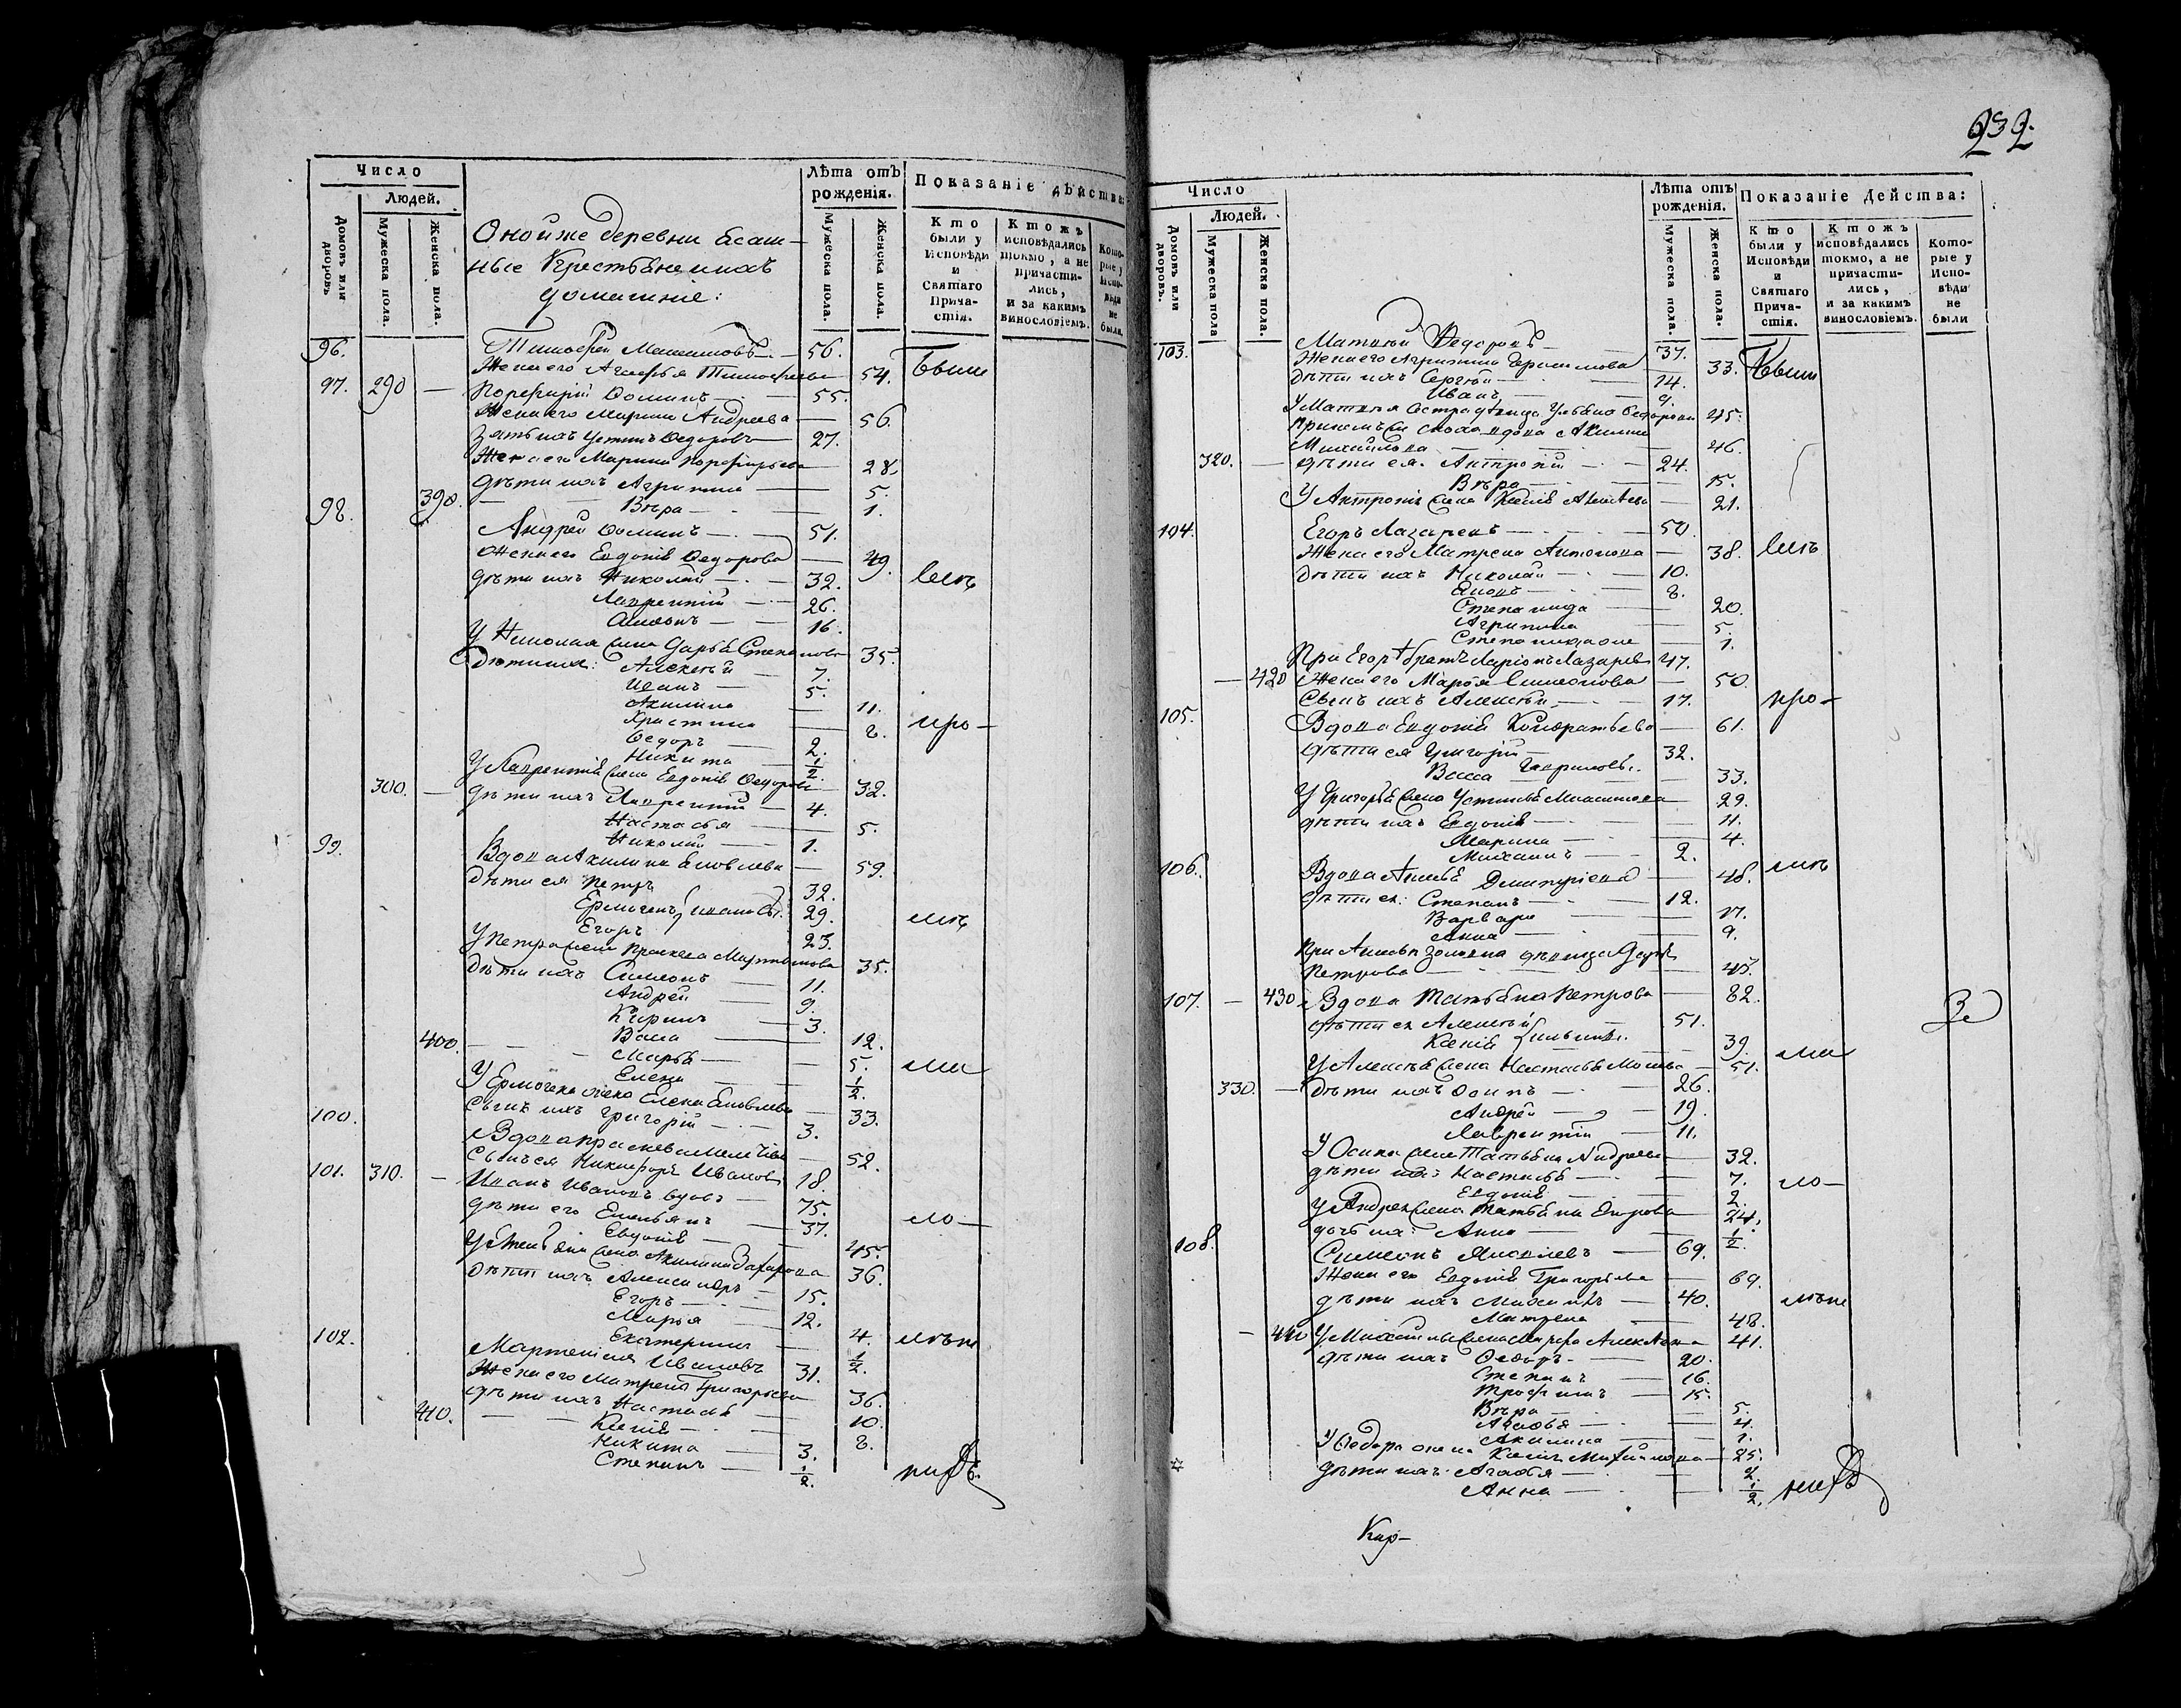 Число
Людей.
Домовъ или дворовъ
Мужеска пола.
Женска пола.
Оной же деревни ясаш-
ные Крестьяне и ихъ
домашніе:
Лѣта отъ рожденія.
Мужеска пола.
Женска пола.
Показаніе дѣйства:
Кто были у Исповѣди и Святаго Прича-стія.
Ктожъ исповѣдались токмо, а не причасти-лись, и за какимъ винословіемъ.
Кото-рые у Испо-вѣди не были.
96. Тимофей Максимовъ — 56.
Жена его Агафья Тимофеева 54. Были
97. 290 — Порфирій Фоминъ — 55.
Жена его Марина Андреева — 56.
Зять ихъ Устинъ Федоровъ 27.
Жена его Марина Порфирьева 28.
дѣти ихъ Агрипина — 5.
390. Вѣра — 1.
98. Андрей Фоминъ — 51.
Жена его Евдокія Федорова — 49.
дѣти ихъ Николай — 32.
Лаврентій — 26.
16.
У Николая жена Дарья Степанова 35.
Дѣти ихъ: Алексѣй — 7.
Иванъ — 5.
Акилина 11.
Христина — 8.
Федоръ — 2.
Никита — 1/2.
У Лаврентія жена Евдокія Федорова 32.
300. — дѣти ихъ Лаврентій — 4.
Настасья — 5.
Николай — 1.
99. Вдова Акилина Яковлева — 59.
Дѣти ея Петръ 32.
Ермогенъ Ивановы. 29.
Егоръ 23.
У Петра жена Прасковья Мартынова 35.
Дѣти ихъ Симеонъ — 11.
Андрей — 9.
Кирилъ — 3.
400. Васа — 12.
Марья — 5.
Елена — 1/2.
У Ермогена жена Елена Яковлева — 33.
Сынъ ихъ Григорій — 3.
100. Вдова Прасковья — 52.
Сынъ ея Никифоръ Ивановъ 18.
101. 310. — Иванъ Ивановъ вдовъ — 75.
дѣти его Емельянъ — 37.
Евдокія — 45.
У Емельяна жена Акилина Захарова 36.
Дѣти ихъ Александръ — 15.
Егоръ — 12.
Марья — 4.
Екатерина — 1/2.
102. Мартемьянъ Ивановъ 31.
Жена его Матрена Григорьева 36.
дѣти ихъ Настасья — 10.
410. Ксенія — 8.
Никита — 3.
Степанъ — 1/2.
232.
Число
Людей.
Домовъ или дворовъ.
Мужеска пола
Женска пола.
Лѣта отъ рожденія.
Мужеска пола.
Женска пола.
Показаніе Дѣйства:
Кто были у Исповѣди и Святаго Прича-стія.
Ктожъ исповѣдались токмо, а не причасти-лись, и за какимъ винословіемъ.
Кото-рые у Испо-вѣди не были
103. Матвѣй Федоровъ 37.
Жена его Агрипина Герасимова 33. Были
Дѣти ихъ Сергѣй — 14.
Иванъ — 9.
У Матвѣя сестра дѣвица Ульяна Федорова 45.
При немъ сноха вдова Акилина
Михайлова — 46.
320. — дѣти ея. Антропій — 24.
Вѣра — 15.
У Антропія жена Ксенія 21.
104. Егоръ Лазаревъ — 50.
Жена его Матрена Антонова — 38.
Дѣти ихъ Николай — 10.
8.
Степанида 20.
Агрипина 5.
Степанида — 1.
При Егорѣ братъ Ларіонъ Лазаревъ 47.
420 Жена его Марья Симеонова — 50.
Сынъ ихъ Алексѣй — 17.
105. Вдова Евдокія Кондратьева — 61.
дѣти ея Григорій — 32.
Васса Гавриловы. 33.
У Григорья жена Устинья 29.
дѣти ихъ Евдокія — 11.
Марина — 4.
Михаилъ — 2.
106. Вдова Дмитріева 48.
дѣти ея: Степанъ — 12.
Варвара — 17.
Анна — 9.
дѣвица Дарья
Петрова — 45.
107. — 430 Вдова Татьяна Петрова — 82.
дѣти ея Алексѣй — 51.
Ксенія 39.
У Алексѣя жена Настасья 51.
330. — Дѣти ихъ Осипъ — 26.
Андрей — 19.
Лаврентій — 11.
У Осипа жена Татьяна Андреева 32.
дѣти ихъ Настасья — 7.
Евдокія — 2.
У Андрея жена Татьяна Егорова 24.
дочь ихъ Анна — 1/2.
108. Симеонъ Яковлевъ — 69.
Жена его Евдокія Григорьева — 69.
дѣти ихъ Михаилъ — 40.
Матрена — 48.
— 440 У Михаилы жена Марфа Алексѣева 41.
дѣти ихъ Федоръ — 20.
Степанъ — 16.
Трофимъ — 15.
Вѣра — 5.
4.
Акилина — 1.
У Федора жена Ксенія Михайлова — 25.
Дѣти ихъ: Агафья — 2.
Анна — 1/2.
Кир-